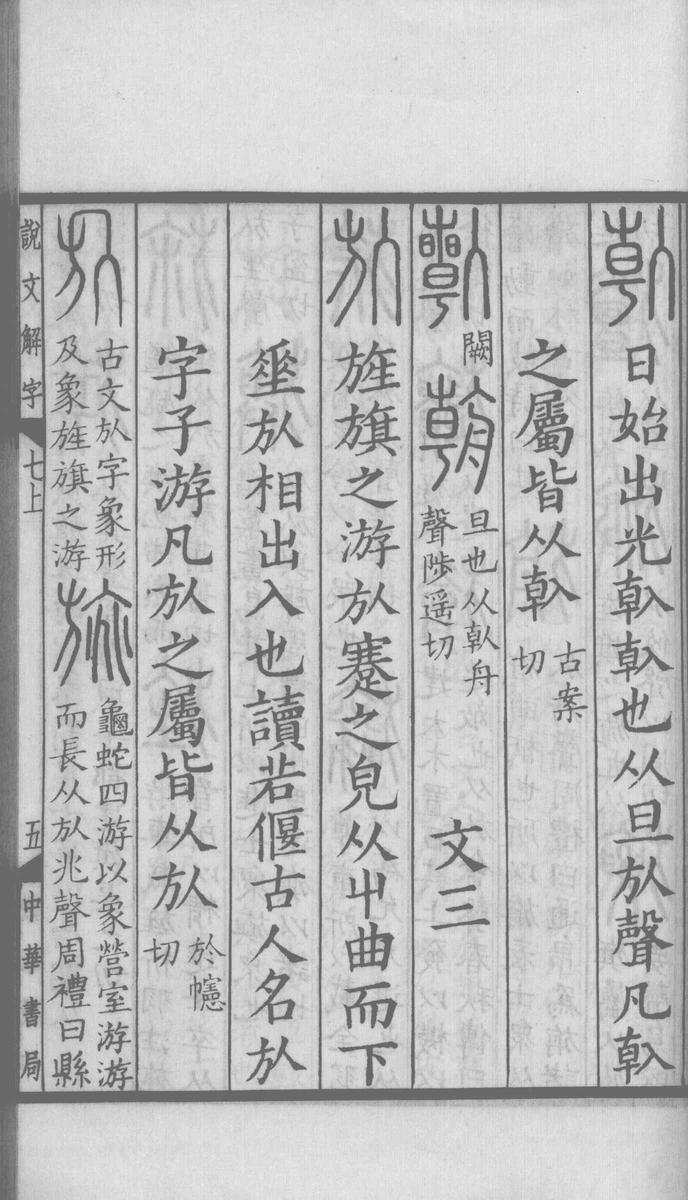 倝日始出光倝倝也从旦㫃聲凡倝
之屬皆从倝古案切
闕
旦也从倝舟聲陟遥切
文三
㫃旌旗之游㫃蹇之皃从屮曲而下
㐲㫃相出入也讀若偃古人名㫃
字子游凡㫃之屬皆从㫃於幰切
古文㫃字象形及象旌旗之游
旐龜蛇四游以象營室游游而長从㫃兆聲周禮曰縣
說文解字 七上 五 中華書局